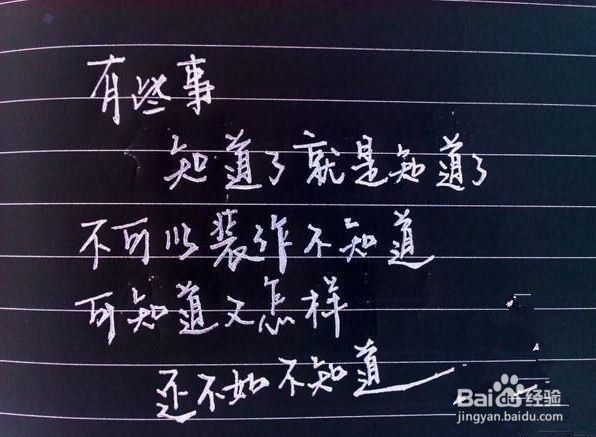 有些事
知道了就是知道了
不可以装作不知道
可知道又怎样
还不如不知道
Baidu经验
jingyan.baidu.com